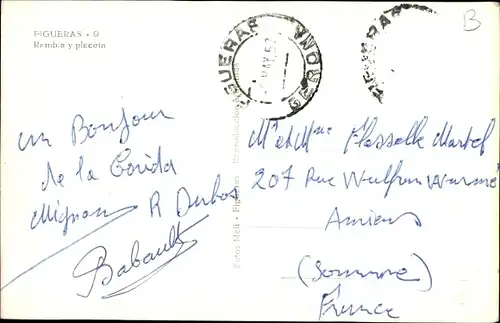 FIGUERAS - 9
Rambla y placeta
B
FIGUERAS
GERONA
MAY.57
un Bonjour
de la Corida
Mignon R Dubos
Babault
Fotos Meli - Figueras
Mr et Mme Flesselle Martel
207 Rue Wulfran Warmé
Amiens
(Somme)
France